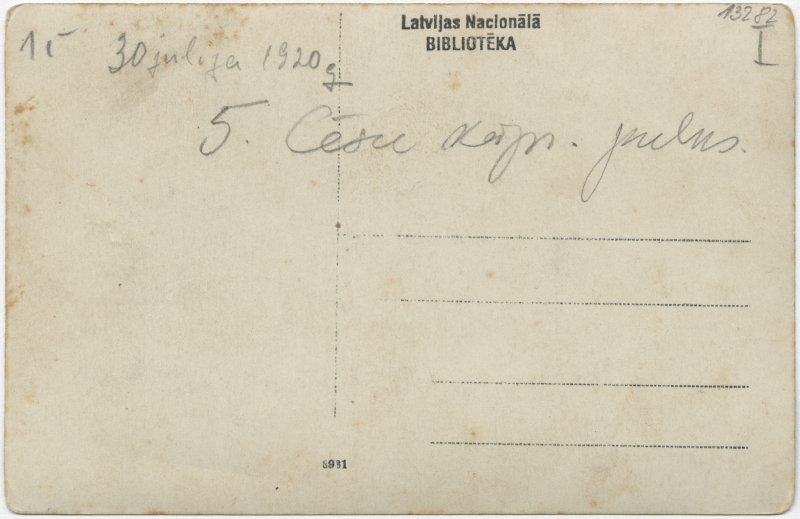 Latvijas Nacionālā
BIBLIOTĒKA
13282
I
30 julija 1920 g
5. Cēsu kājn. pulks.
8931